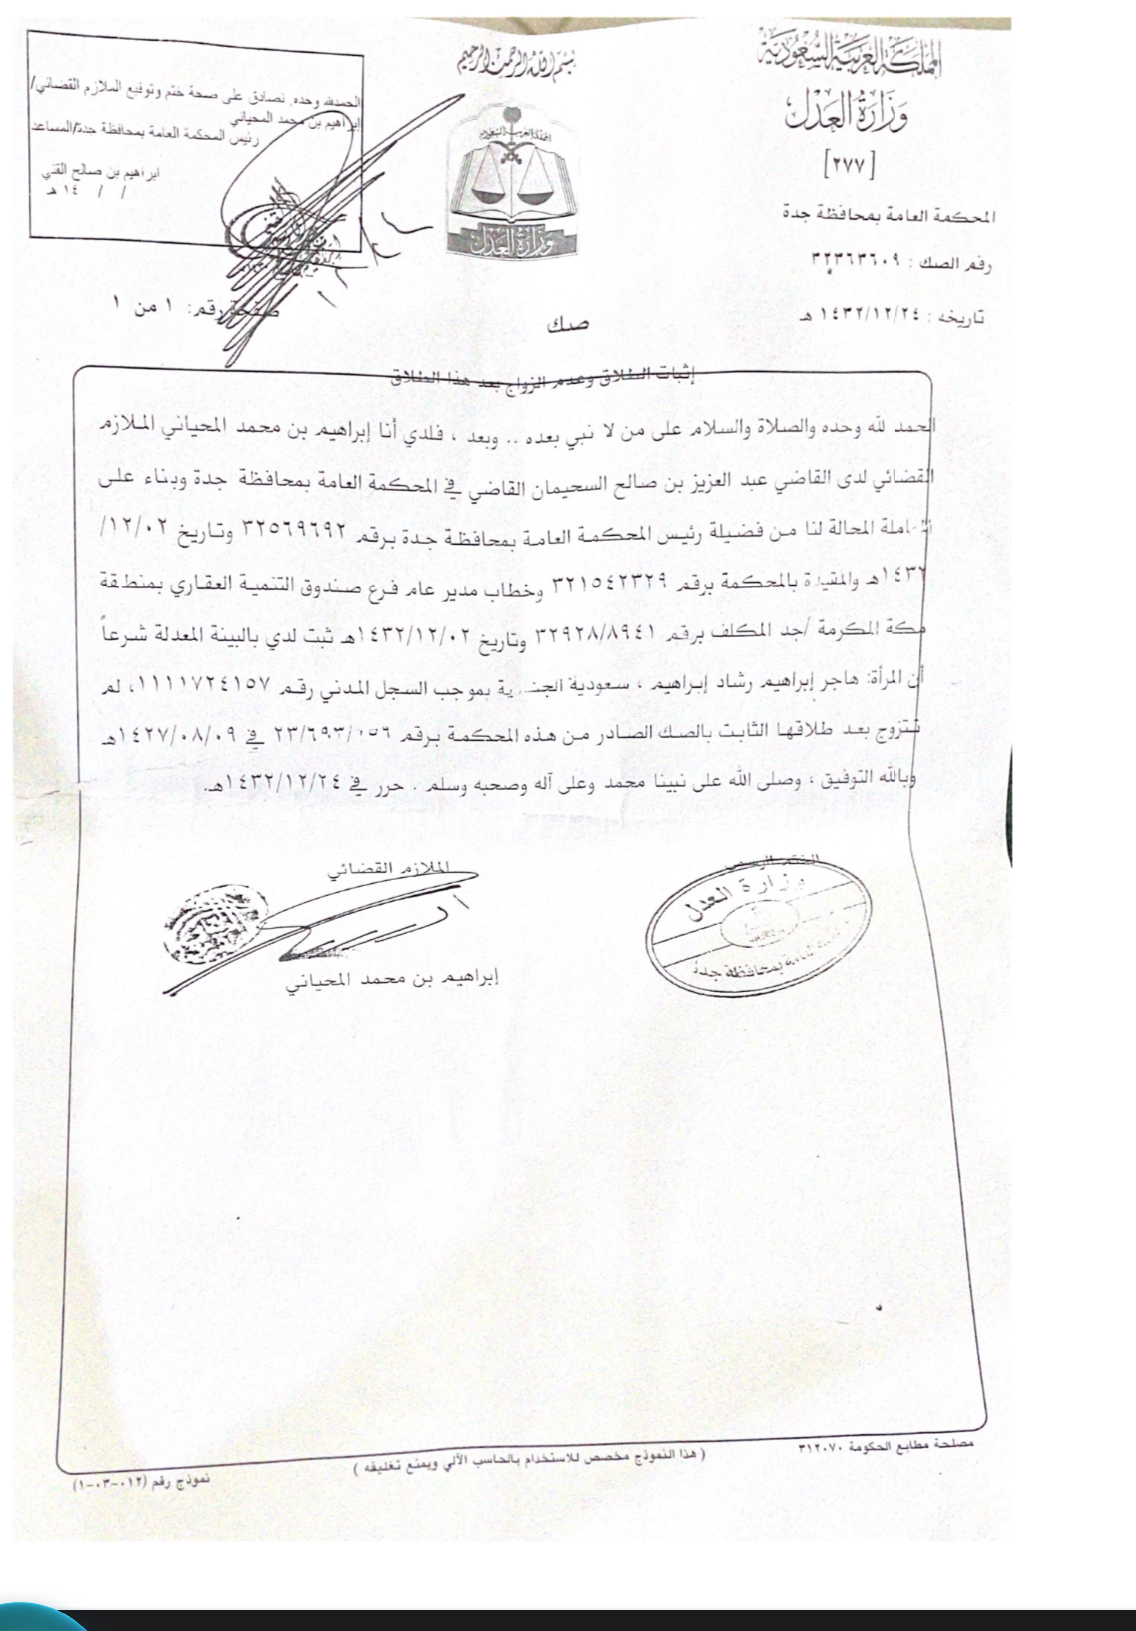 المملكة العربية السعودية
وزارة العدل
[٢٧٧]
المحكمة العامة بمحافظة جدة
رقم الصك : ٣٢٣٦٣٦٠٩
تاريخه : ١٤٣٢/١٢/٢٤ هـ
بسم الله الرحمن الرحيم
وزارة العدل
الحمدلله وحده, نصادق على صحة ختم وتوقيع الملازم القضائي/
إبراهيم بن محمد المحياني
رئيس المحكمة العامة بمحافظة جدة/المساعد
ابراهيم بن صالح القني
/ / ١٤ هـ
صفحة رقم: ١ من ١
صك
إثبات الطلاق وعدم الزواج بعد هذا الطلاق
الحمد لله وحده والصلاة والسلام على من لا نبي بعده .. وبعد ، فلدي أنا إبراهيم بن محمد المحياني الملازم
القضائي لدى القاضي عبد العزيز بن صالح السحيمان القاضي في المحكمة العامة بمحافظة جدة وبناء على
المعاملة المحالة لنا من فضيلة رئيس المحكمة العامة بمحافظة جدة برقم ٣٢٥٦٩٦٩٢ وتاريخ ١٢/٠٢/
١٤٣٢هـ والمقيدة بالمحكمة برقم ٣٢١٥٤٢٣٢٩ وخطاب مدير عام فرع صندوق التنمية العقاري بمنطقة
مكة المكرمة /جد المكلف برقم ٣٢٩٢٨/٨٩٤١ وتاريخ ١٤٣٢/١٢/٠٢هـ ثبت لدي بالبينة المعدلة شرعاً
أن المرأة: هاجر إبراهيم رشاد إبراهيم ، سعودية الجنسية بموجب السجل المدني رقم ١١١١٧٢٤١٥٧، لم
تتزوج بعد طلاقها الثابت بالصك الصادر من هذه المحكمة برقم ٢٣/٦٩٣/٠٥٦ في ١٤٢٧/٠٨/٠٩هـ
وبالله التوفيق ، وصلى الله على نبينا محمد وعلى آله وصحبه وسلم . حرر في ١٤٣٢/١٢/٢٤هـ.
الختم الرسمي
وزارة العدل
المحكمة العامة بمحافظة جدة
الملازم القضائي
إبراهيم بن محمد المحياني
مصلحة مطابع الحكومة ٣١٢٠٧٠
( هذا النموذج مخصص للاستخدام بالحاسب الآلي ويمنع تغليفه )
نموذج رقم (١٢-٠٣-٠١)